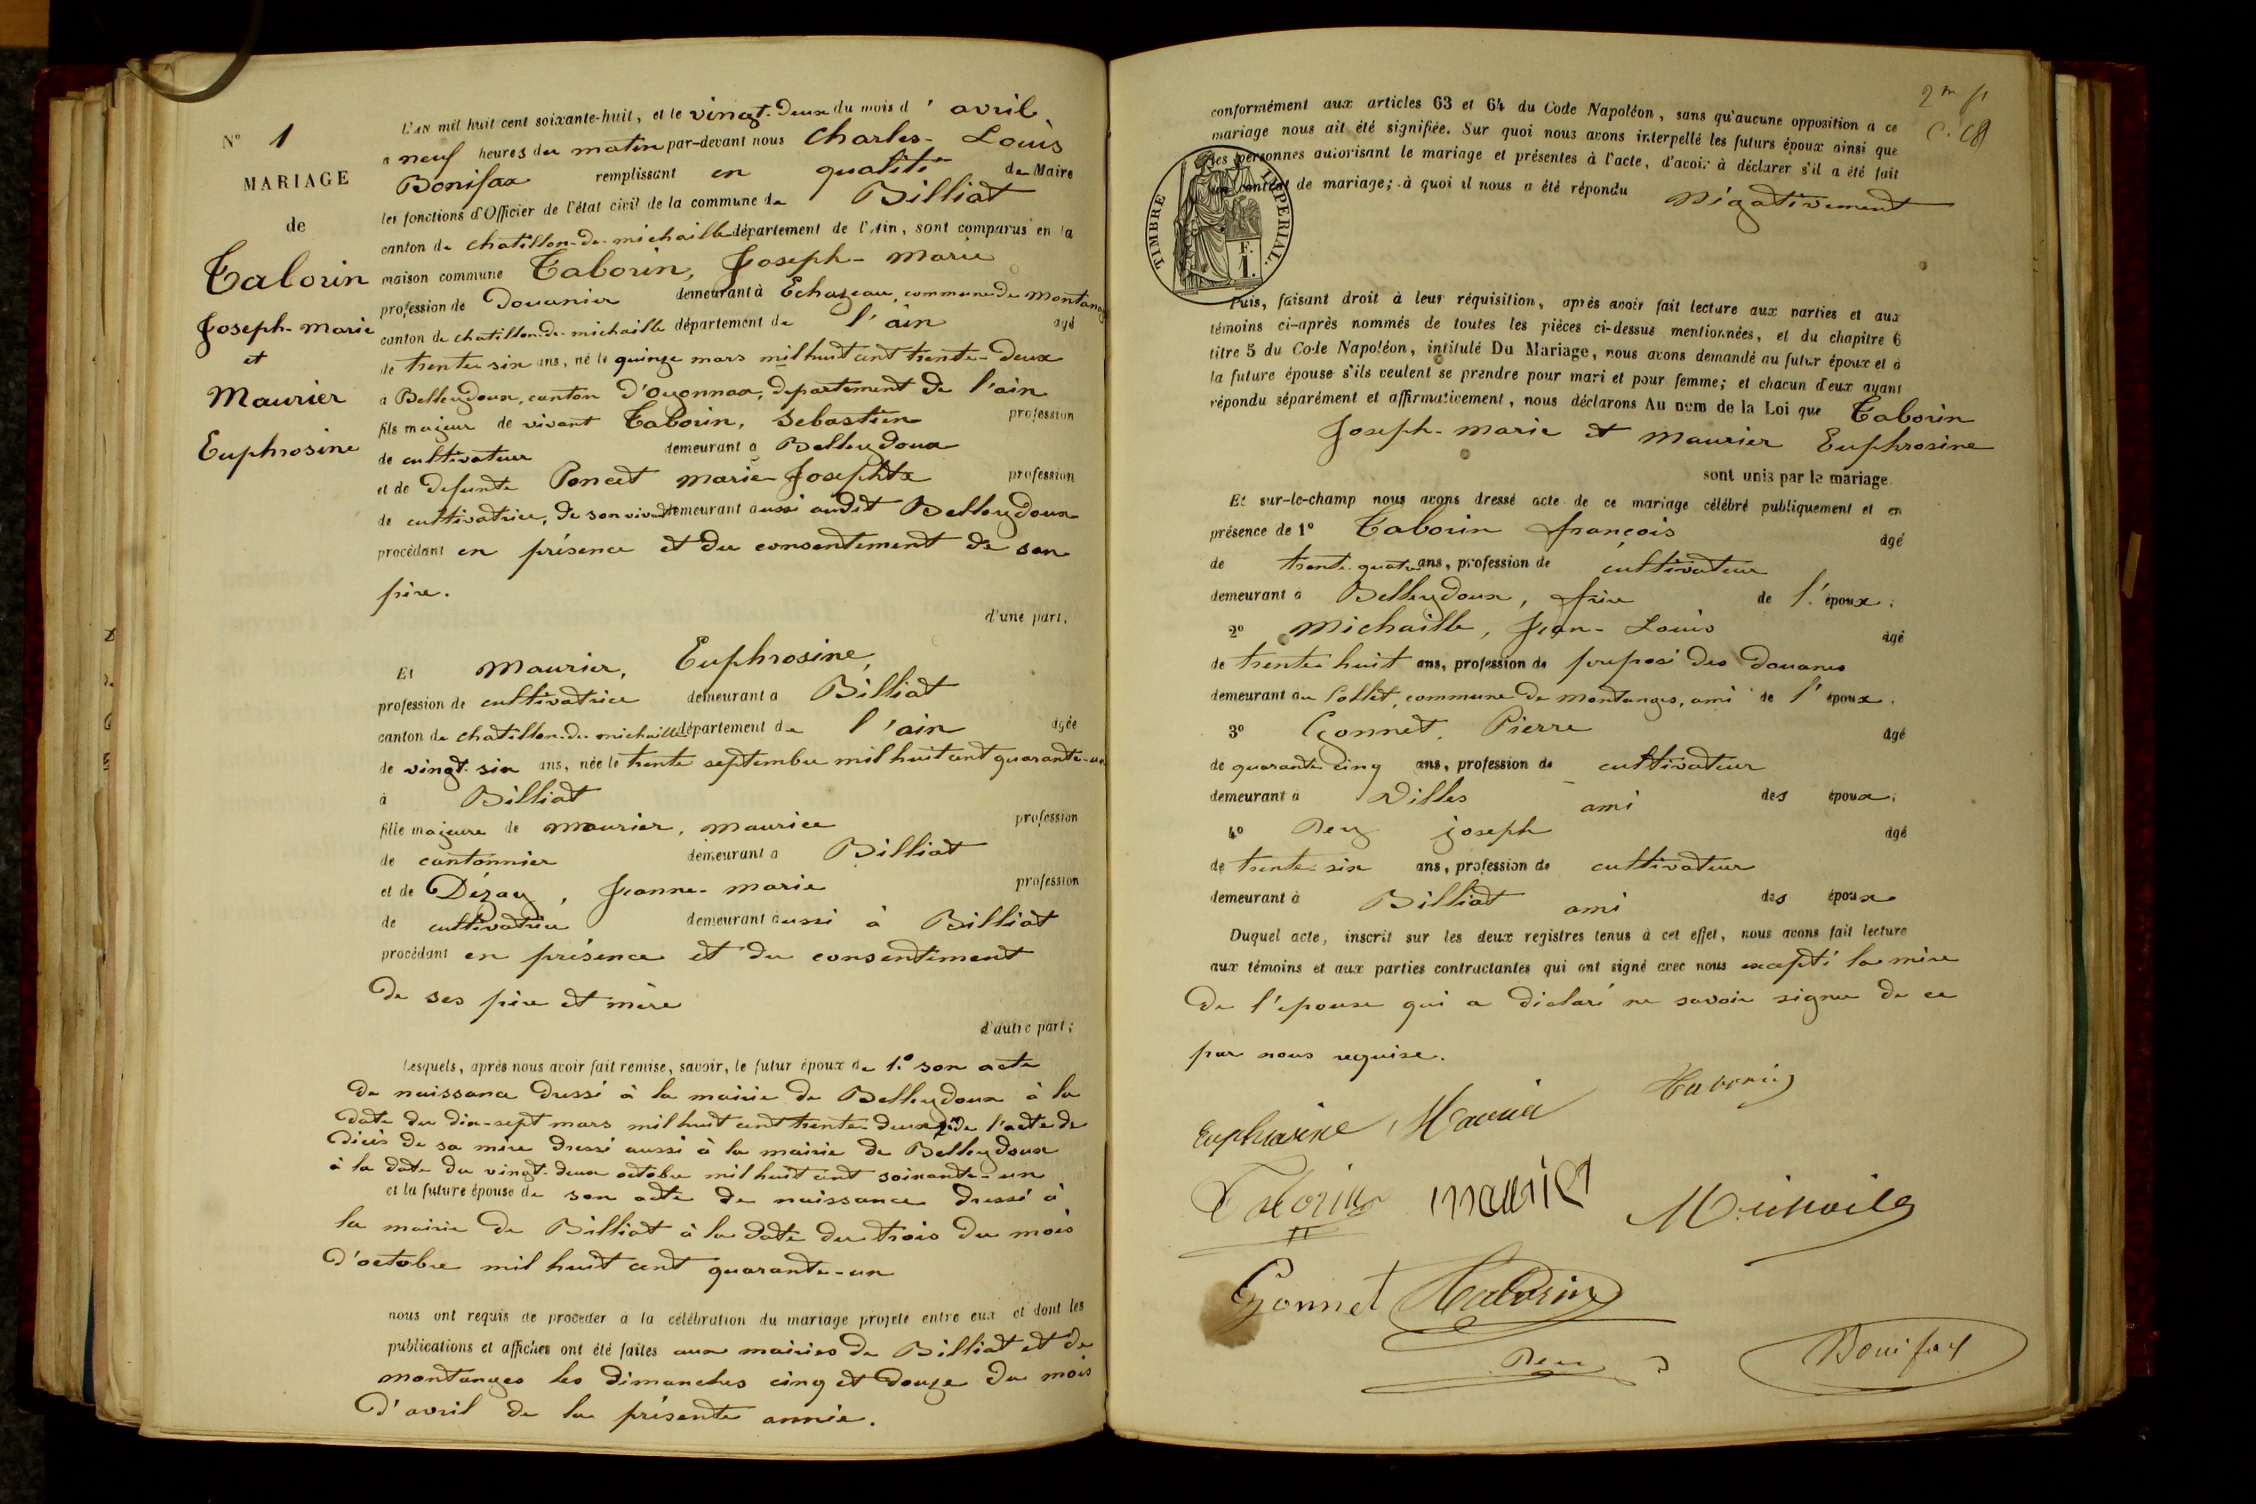 N° 1
MARIAGE
de
Taborin
Joseph-marie
et
Maurier
Euphrosine
L'AN mil huit cent soixante-huit, et le vingt-deux du mois d'avril
a neuf heures du matin par-devant nous Charles-Louis
Bonifax remplissant en qualité de Maire
les fonctions d'Officier de l'état civil de la commune de Billiat
canton de chatillon-de-michaille département de l'Ain, sont comparus en la
maison commune Taborin, Joseph-marie
profession de Douanier demeurant à Echazeau, commune de montanges
canton de chatillon-de-michaille département de l'ain agé
de trente six ans, né le quinze mars mil huit cent trente-deux
a Belleydoux, canton d'oyonnax, département de l'ain
fils majeur de vivant Taborin, Sebastien profession
de cultivateur demeurant a Belleydoux
et de defunte Poncet marie-Josephte profession
de cultivatrice, de son vivant demeurant aussi audit Belleydoux
procédant en présence et du consentement de son
père.
d'une part,
Et Maurier, Euphrosine,
profession de cultivatrice demeurant a Billiat
canton de chatillon-de-michaille département de l'ain agée
de vingt-six ans, née le trente septembre mil huit cent quarante-un
à Billiat
fille majeure de maurier, maurice profession
de cantonnier demeurant a Billiat
et de Dézay, Jeanne-marie profession
de cultivatrice demeurant aussi à Billiat
procédant en présence et du consentement
de ses père et mère
d'autre part;
Lesquels, après nous avoir fait remise, savoir, le futur époux de 1.° son acte
de naissance dressé à la mairie de Belleydoux à la
date du dix-sept mars mil huit cent trente-deux 2° de l'acte de
décès de sa mère dressé aussi à la mairie de Belleydoux
à la date du vingt-deux octobre mil huit cent soixante-un
et la future épouse de son acte de naissance dressé à
la mairie de Billiat à la date du trois du mois
d'octobre mil huit cent quarante-un
nous ont requis de procéder à la célébration du mariage projeté entre eux et dont les
publications et affiches ont été faites aux mairies de Billiat et de
montanges les dimanches cinq et douze du mois
d'avril de la présente année.
conformément aux articles 63 et 64 du Code Napoléon, sans qu'aucune opposition à ce
mariage nous ait été signifiée. Sur quoi nous avons interpellé les futurs époux ainsi que
les personnes autorisant le mariage et présentes à l'acte, d'avoir à déclarer s'il a été fait
un contrat de mariage; à quoi il nous a été répondu Négativement
TIMBRE IMPÉRIAL
F.
1.
Puis, faisant droit à leur réquisition, après avoir fait lecture aux parties et aux
témoins ci-après nommés de toutes les pièces ci-dessus mentionnées, et du chapitre 6
titre 5 du Code Napoléon, intitulé Du Mariage, nous avons demandé au futur époux et à
la future épouse s'ils veulent se prendre pour mari et pour femme; et chacun d'eux ayant
répondu séparément et affirmativement, nous déclarons Au nom de la Loi que Taborin
Joseph-marie et maurier Euphrosine
sont unis par le mariage.
Et sur-le-champ nous avons dressé acte de ce mariage célébré publiquement et en
présence de 1° Taborin françois âgé
de trente-quatre ans, profession de cultivateur
demeurant à Belleydoux, frère de l'époux.
2° Michaille, Jean-Louis âgé
de trente huit ans, profession de préposé des douanes
demeurant au Collet, commune de montanges, ami de l'époux.
3° Gonnet, Pierre âgé
de quarante cinq ans, profession de cultivateur
demeurant à Villes ami des époux.
4° Rey joseph âgé
de trente-six ans, profession de cultivateur
demeurant à Billiat ami des époux
Duquel acte, inscrit sur les deux registres tenus à cet effet, nous avons fait lecture
aux témoins et aux parties contractantes qui ont signé avec nous excepté la mère
de l'épouse qui a déclaré ne savoir signer de ce
par nous requise.
Euphrosine Maurier Taborin
Taborin maurier Michaille
Gonnet Taborin
Rey Bonifax